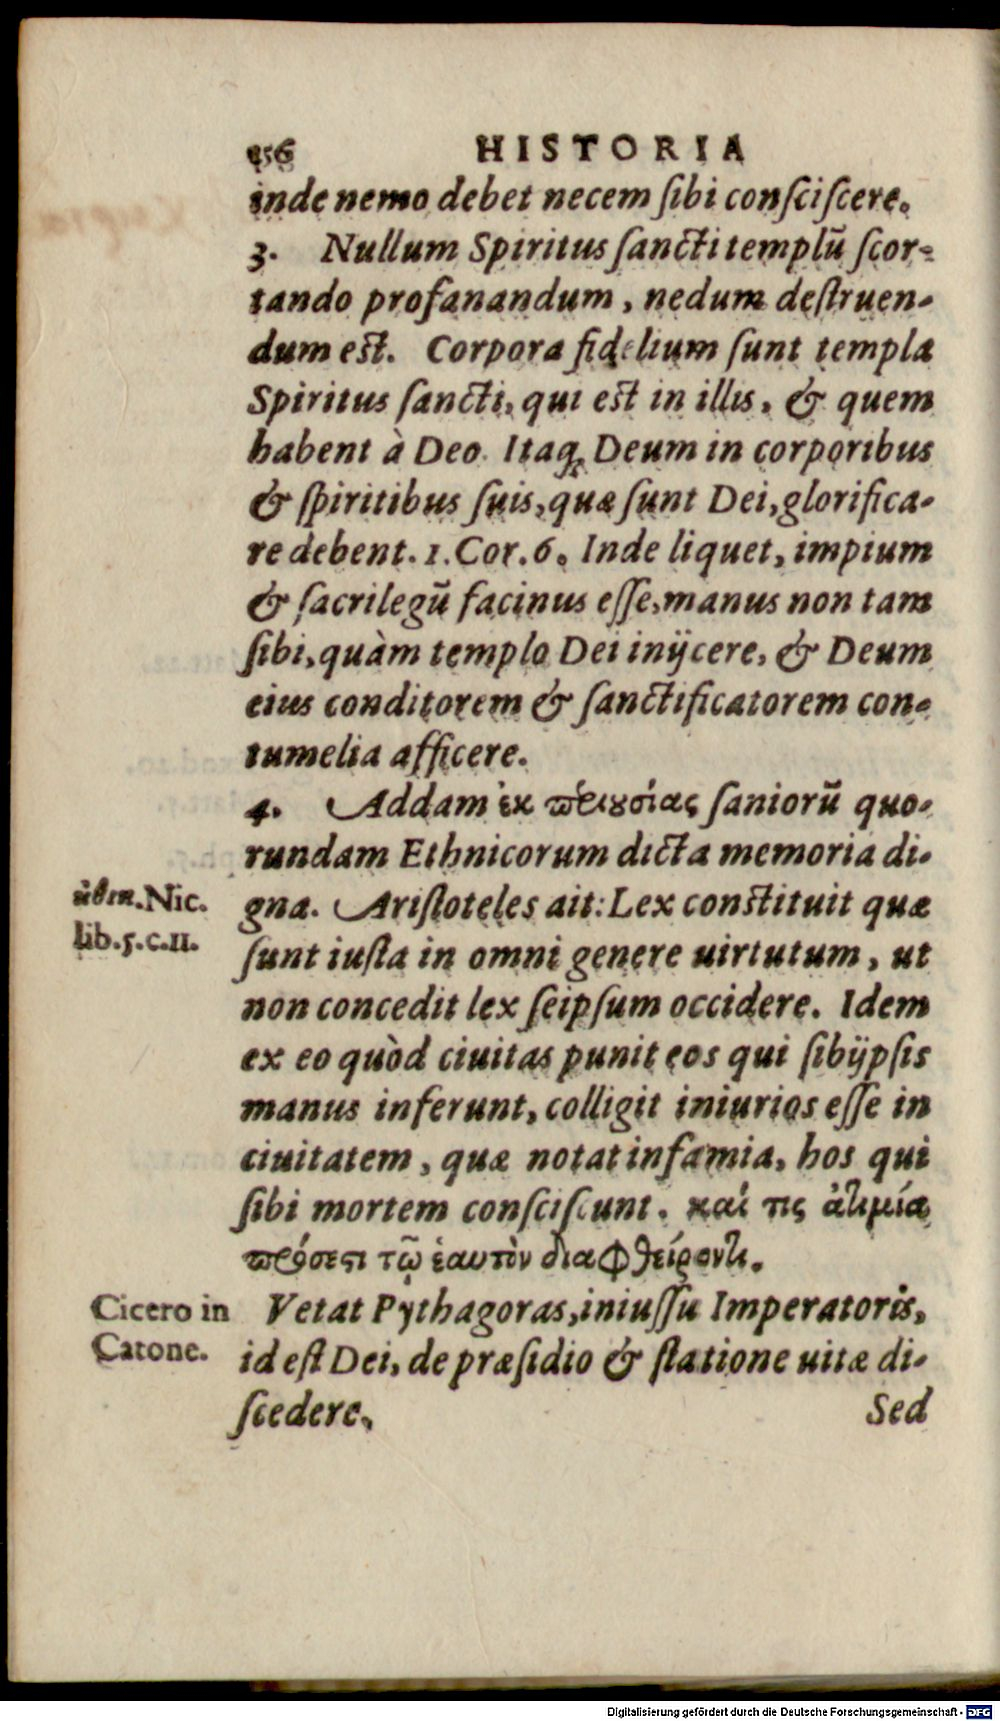 156 HISTORIA
inde nemo debet necem ſibi conſciſcere.
3. Nullum Spiritus ſancti templũ ſcor-
tando profanandum, nedum deſtruen-
dum eſt. Corpora fidelium ſunt templa
Spiritus ſancti, qui eſt in illis, & quem
habent à Deo. Itaq; Deum in corporibus
& ſpiritibus ſuis, quæ ſunt Dei, glorifica-
re debent. 1. Cor. 6. Inde liquet, impium
& ſacrilegũ facinus eſſe, manus non tam
ſibi, quàm templo Dei inijcere, & Deum
eius conditorem & ſanctificatorem con-
tumelia afficere.
4. Addam ἐκ περιουσίας ſaniorũ quo-
rundam Ethnicorum dicta memoria di-
gna. Ariſtoteles ait: Lex conſtituit quæ
ſunt iuſta in omni genere uirtutum, ut
non concedit lex ſeipſum occidere. Idem
ex eo quòd ciuitas punit eos qui ſibijpſis
manus inferunt, colligit iniurios eſſe in
ciuitatem, quæ notat infamia, hos qui
ſibi mortem conſciſcunt. καί τις ἀτιμία
πρόσεστι τῷ ἑαυτὸν διαφθείροντι.
Vetat Pythagoras, iniuſſu Imperatoris,
id eſt Dei, de præſidio & ſtatione uitæ di-
ſcedere.
Sed
Nic.
lib. 5. c. 11.
Cicero in
Catone.
Digitalisierung gefördert durch die Deutsche Forschungsgemeinschaft - DFG